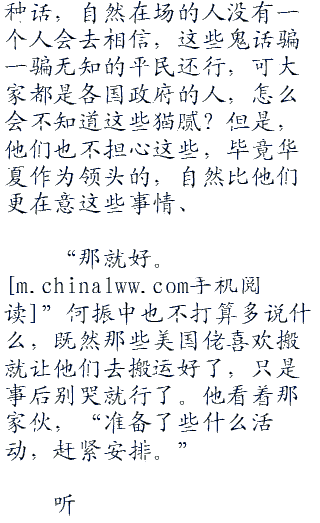 种话，自然在场的人没有一
个人会去相信，这些鬼话骗
一骗无知的平民还行，可大
家都是各国政府的人，怎么
会不知道这些猫腻？但是，
他们也不担心这些，毕竟华
夏作为领头的，自然比他们
更在意这些事情、
“那就好。
[m.china1ww.com手机阅
读]”何振中也不打算多说什
么，既然那些美国佬喜欢搬
就让他们去搬运好了，只是
事后别哭就行了。他看着那
家伙，“准备了些什么活
动，赶紧安排。”
听